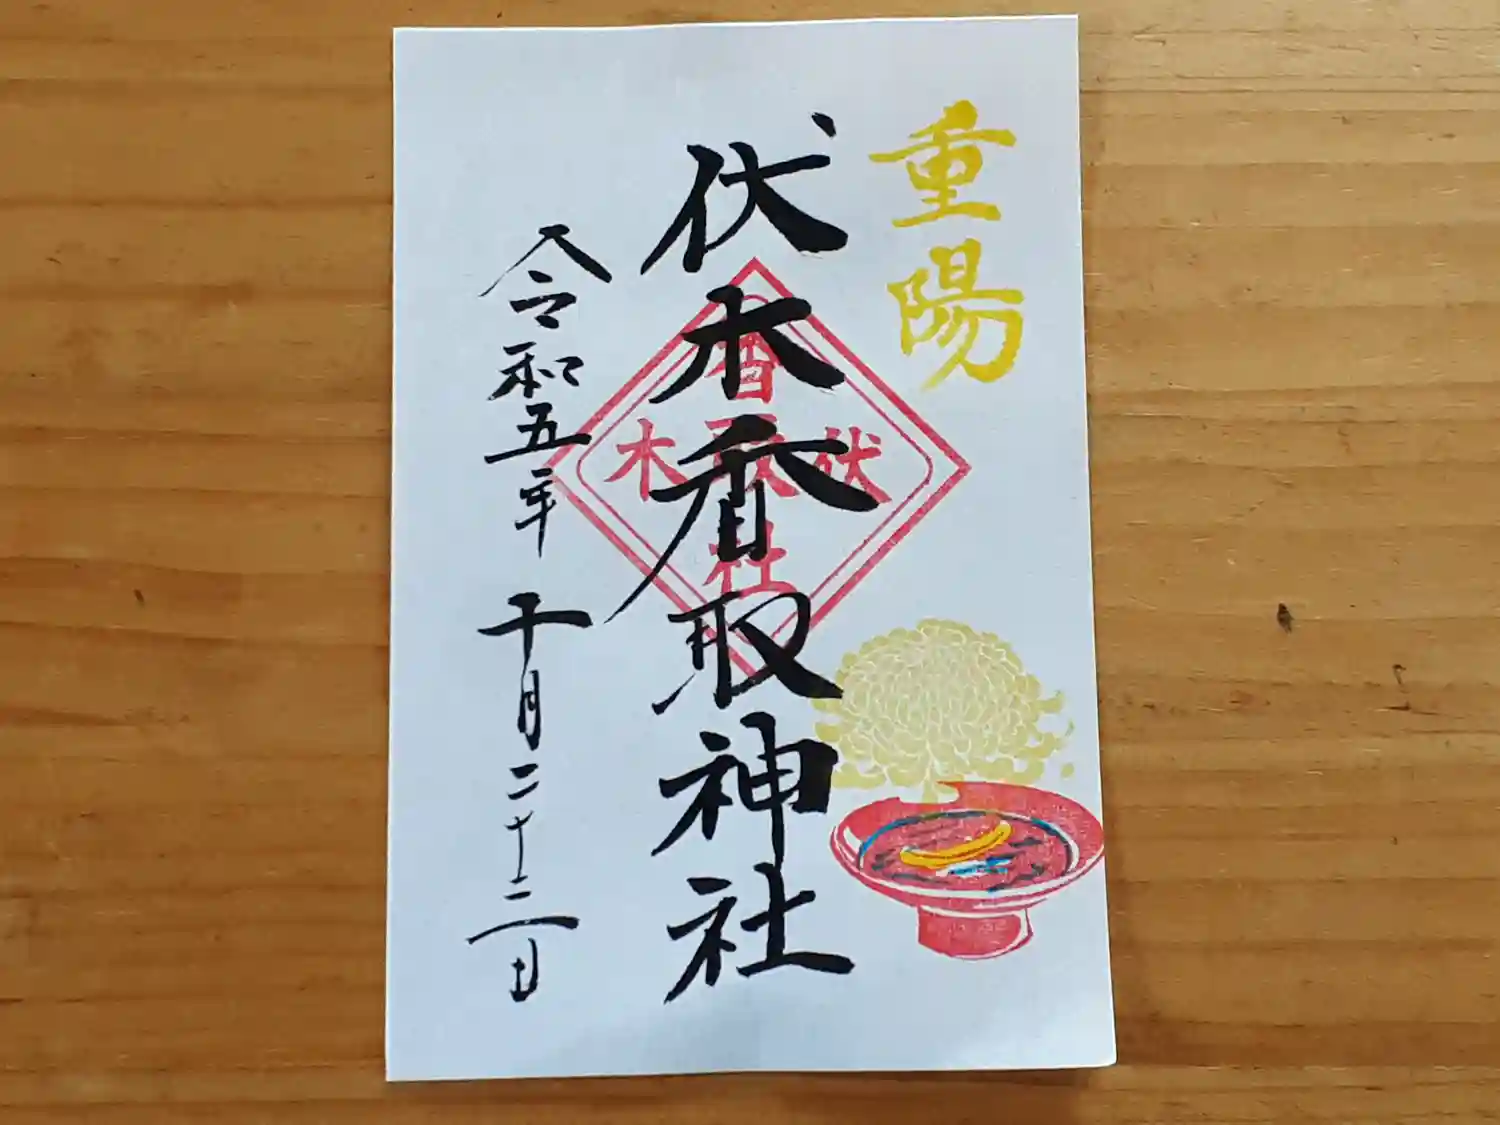 重陽
伏木香取神社
香取
伏木
社
令和五年十月二十二日